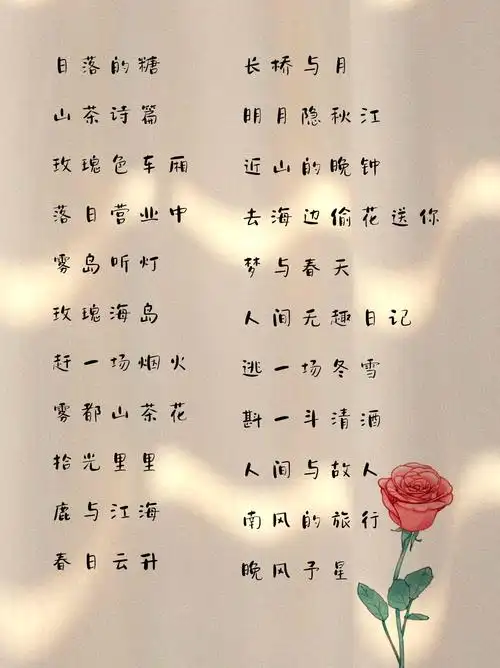 日落的糖
山茶诗篇
玫瑰色车厢
落日营业中
雾岛听灯
玫瑰海岛
赶一场烟火
雾都山茶花
拾光里里
鹿与江海
春日云升
长桥与月
明月隐秋江
近山的晚钟
去海边偷花送你
梦与春天
人间无趣日记
逃一场冬雪
斟一斗清酒
人间与故人
南风的旅行
晚风予星